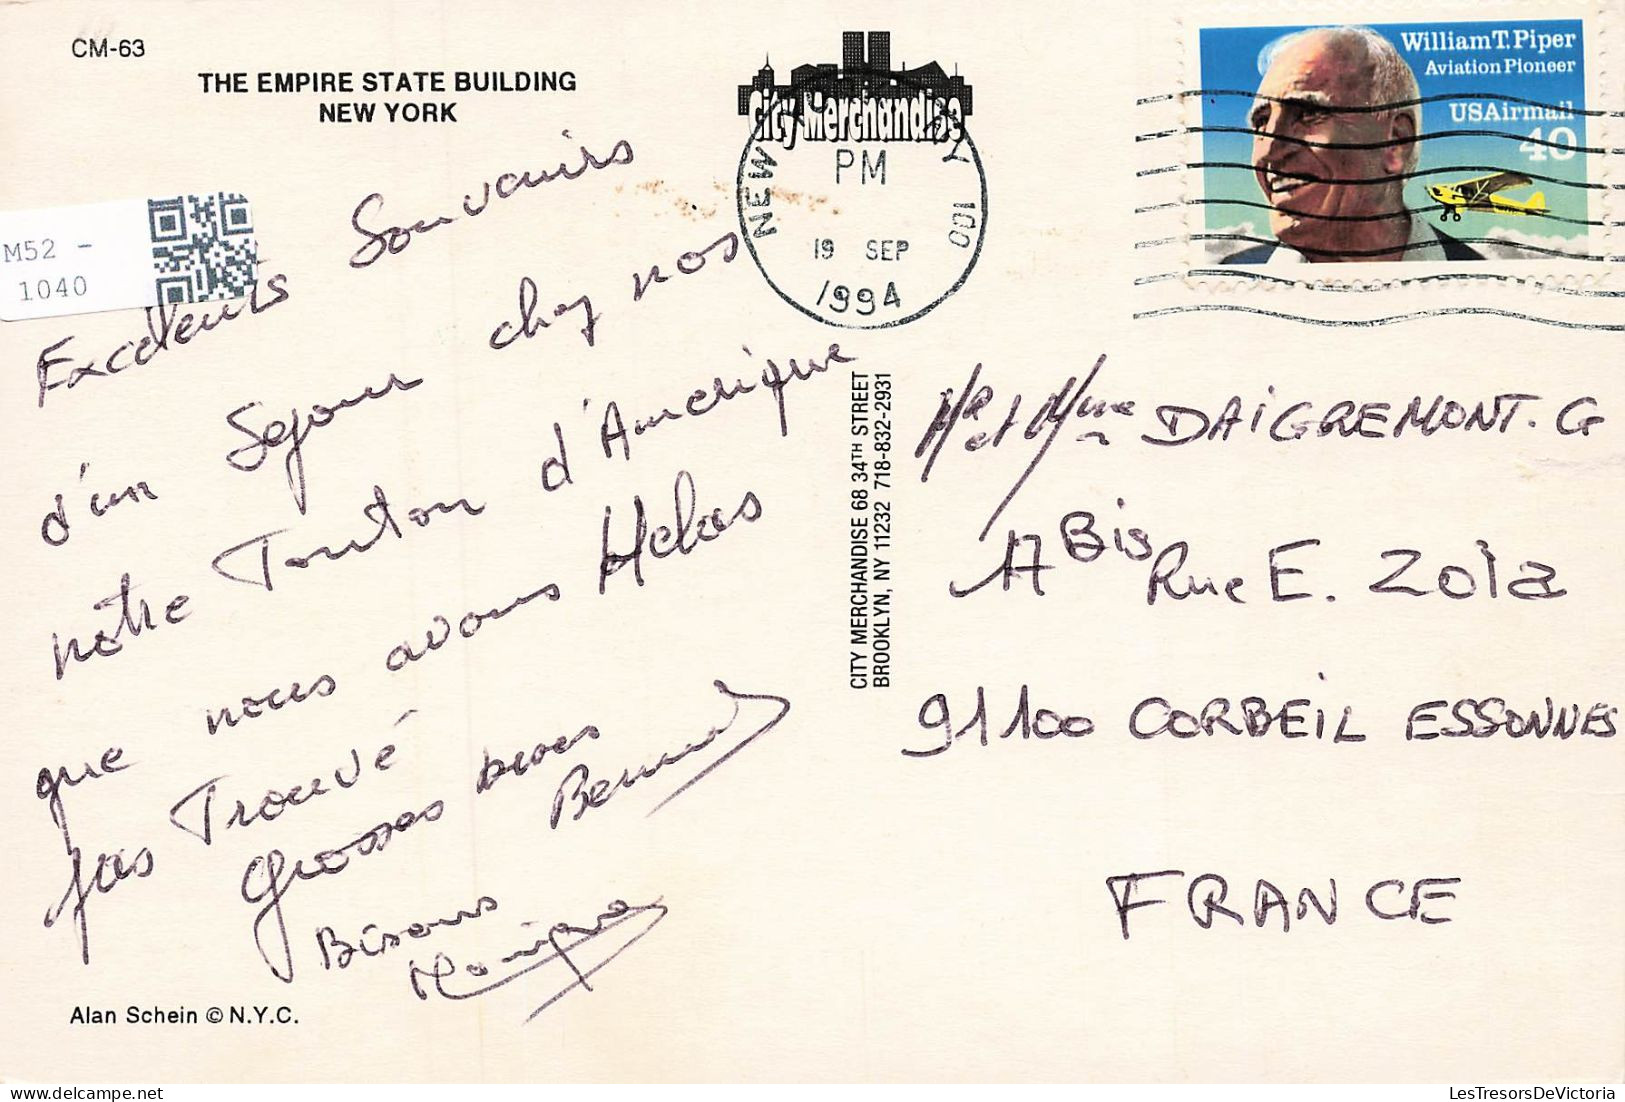 CM-63
THE EMPIRE STATE BUILDING
NEW YORK
M52 -
1040
City Merchandise
NEW
100
PM
19 SEP
1994
William T. Piper
Aviation Pioneer
USAirmail
40
Excellents Souvenirs
d'un Sejour chez nos
notre Tonton d'Amerique
que nous avons Helas
pas Trouvé
Grosses bises
Bernard
Bisous
Monique
Alan Schein © N.Y.C.
CITY MERCHANDISE 68 34TH STREET
BROOKLYN, NY 11232 718-832-2931
Mr et Mme DAiGREMONT. G
17 Bis Rue E. Zola
91100 CORBEiL ESSONNES
FRANCE
LesTresorsDeVictoria